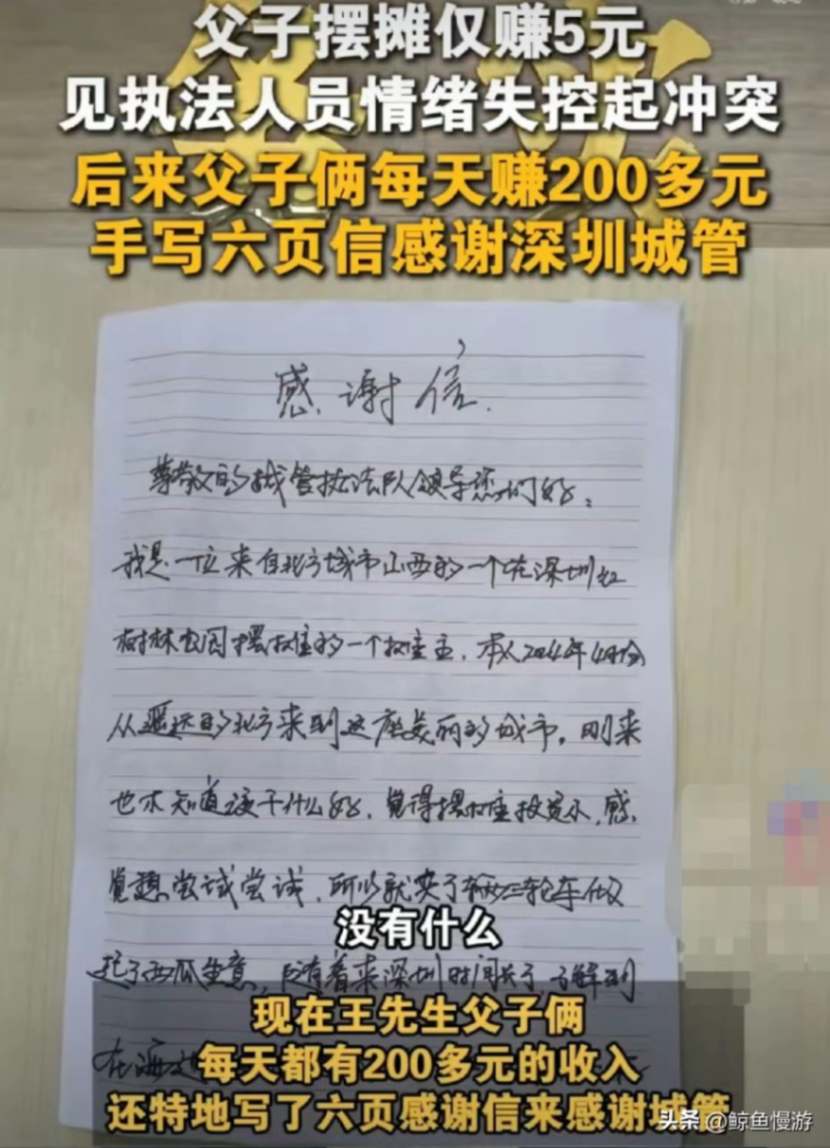 父子摆摊仅赚5元
见执法人员情绪失控起冲突
后来父子俩每天赚200多元
手写六页信感谢深圳城管
感谢信
尊敬的城管执法队领导您们好。
我是一位来自北方城市山西的一个在深圳红
树林公园摆摊的一个摊主，本人2024年4月份
从遥远的北方来到这座美丽的城市。刚来
也不知道该干什么好，觉得摆摊投资小，感
觉想尝试尝试，所以就买了辆三轮车做
起了西瓜生意，随着来深圳时间长了，了解到
没有什么
在海边
现在王先生父子俩
每天都有200多元的收入
还特地写了六页感谢信来感谢城管
头条@鲸鱼慢游